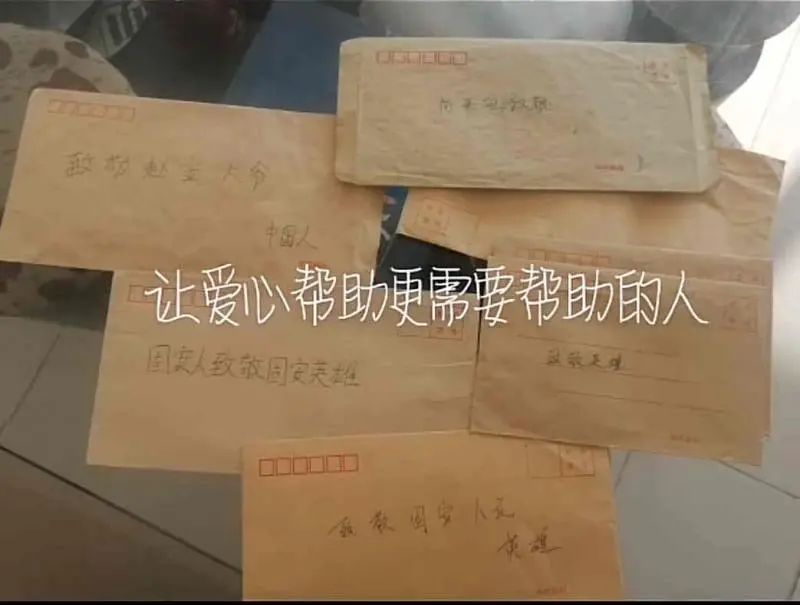 向英雄致敬
致敬赵宝大爷
中国人
让爱心帮助更需要帮助的人
固安人致敬固安英雄
致敬英雄
致敬固安人民
英雄